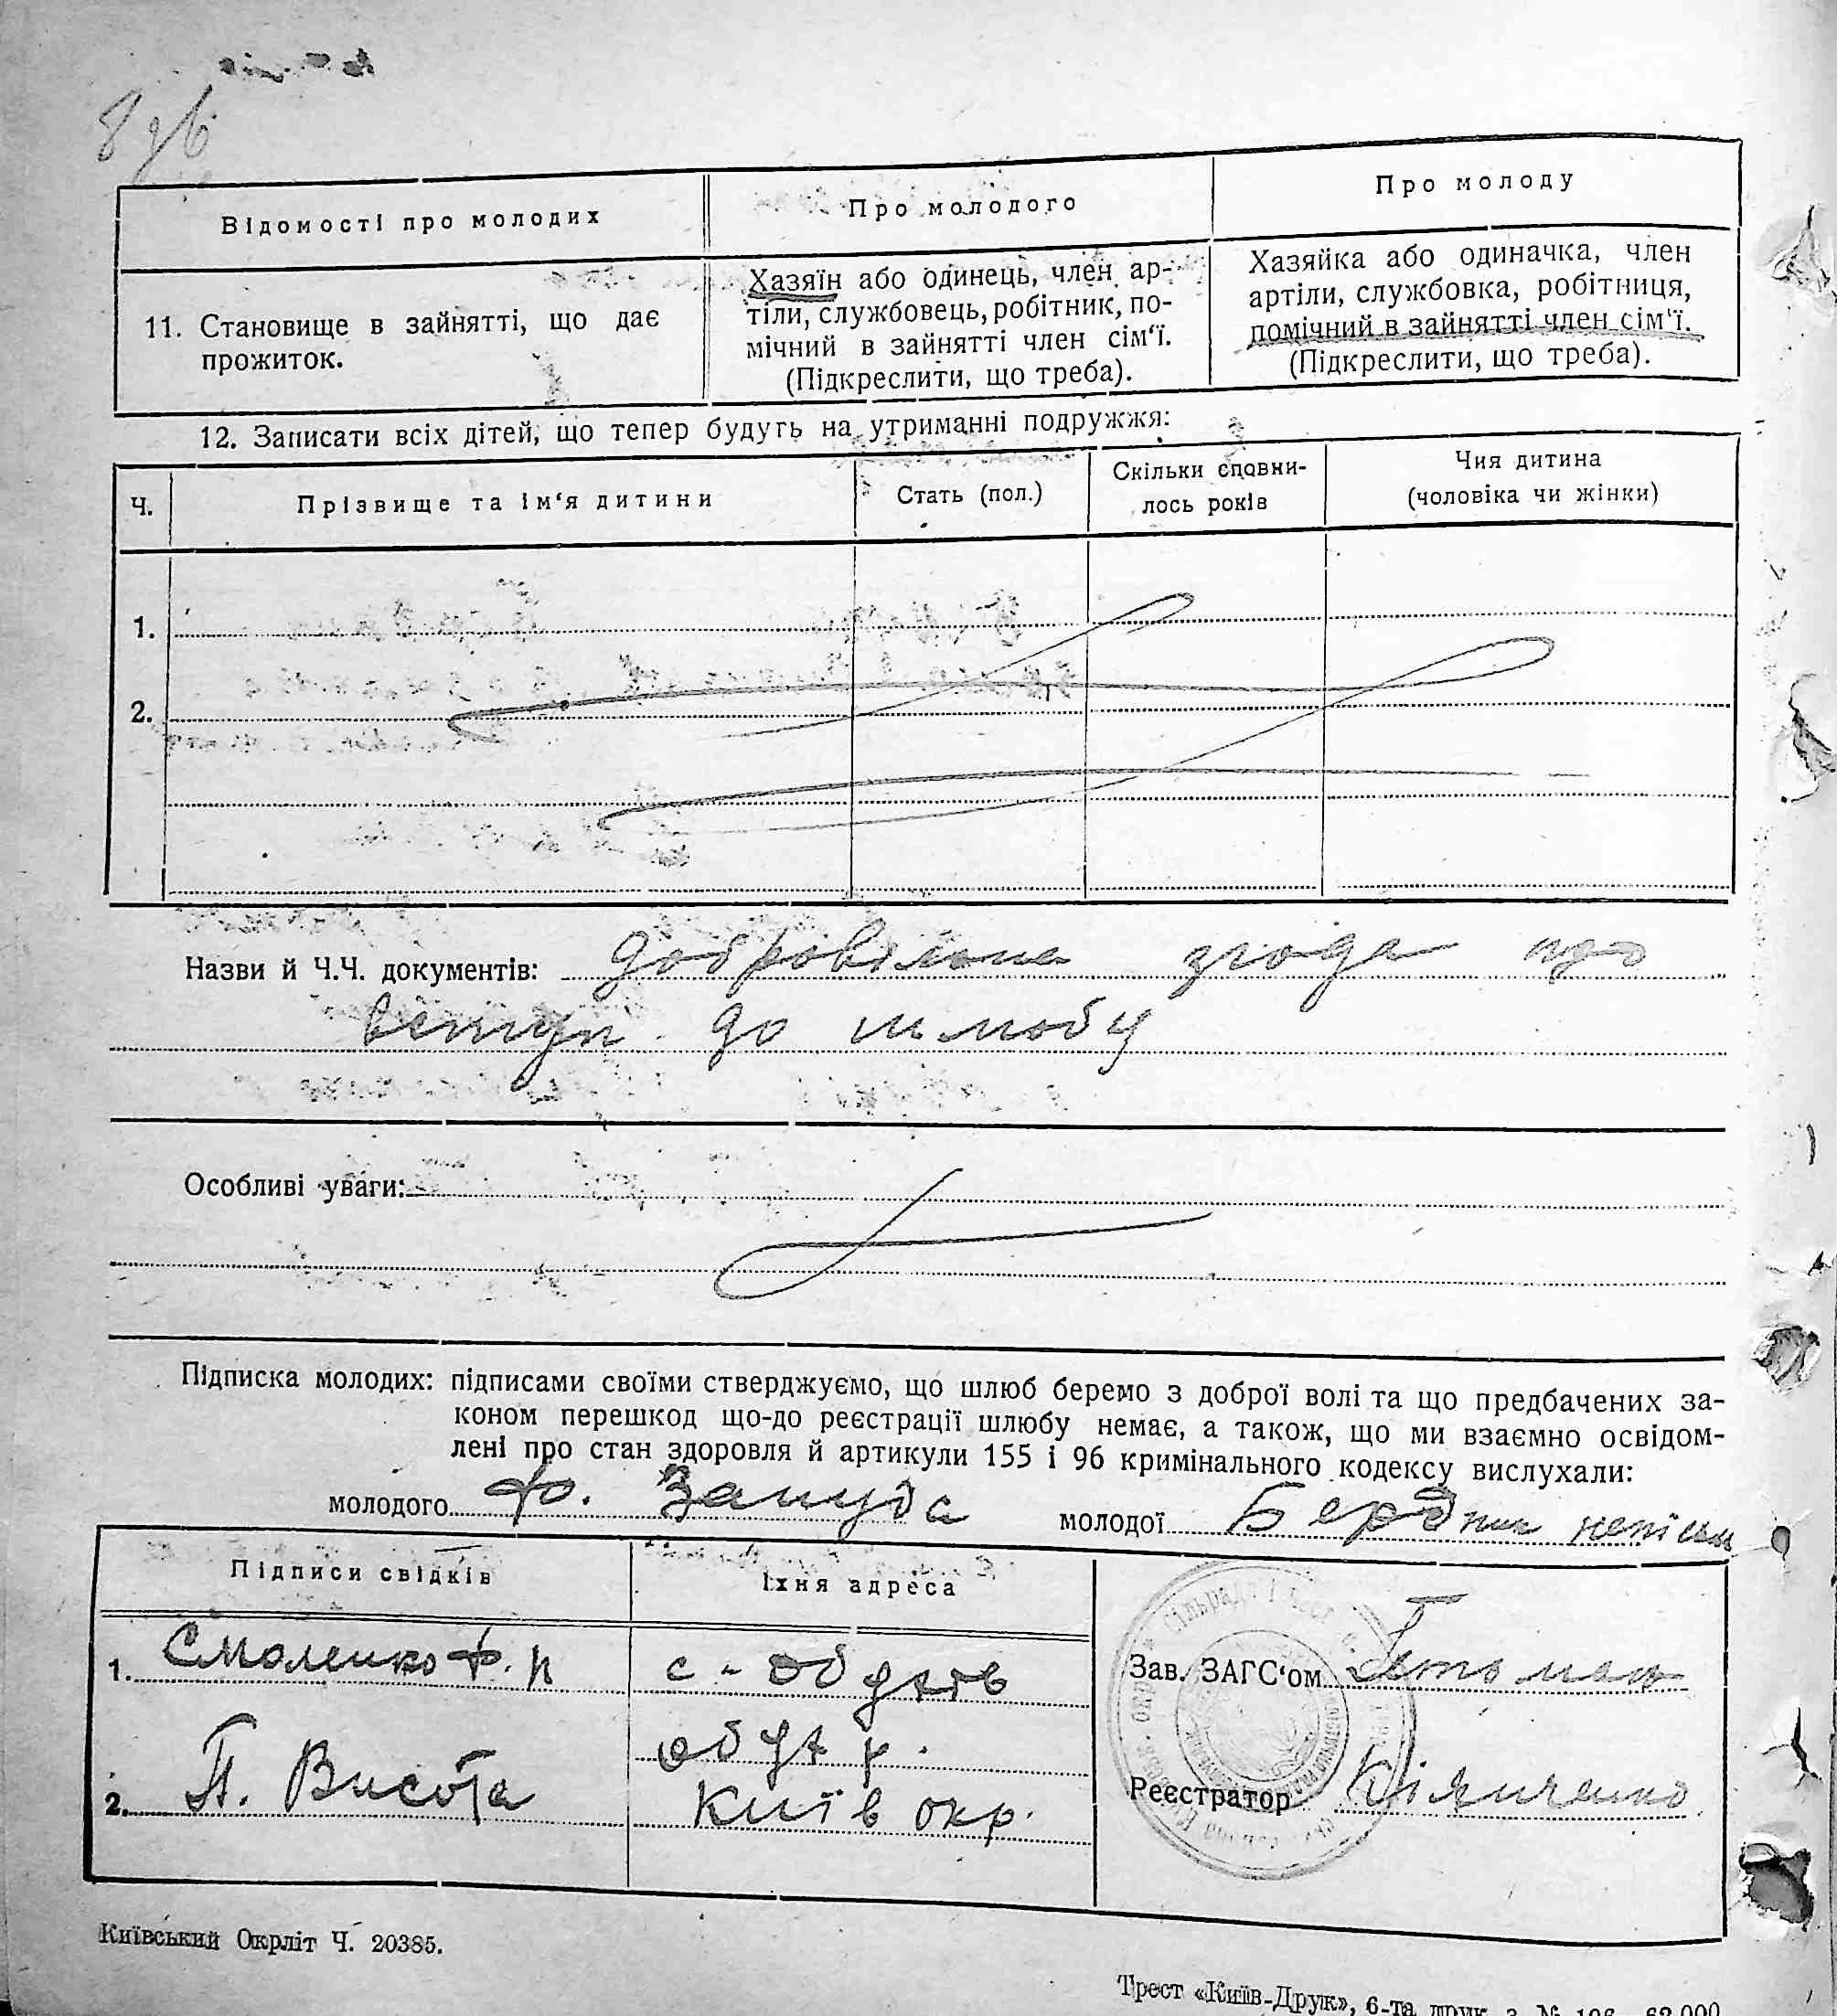 Відомості про молодих
Про молодого
Про молоду
11. Становище в зайнятті, що дає
прожиток.
Хазяїн або одинець, член ар-
тіли, службовець, робітник, по-
мічний в зайнятті член сім'ї.
(Підкреслити, що треба).
Хазяйка або одиначка, член
артіли, службовка, робітниця,
помічний в зайнятті член сім'ї.
(Підкреслити, що треба).
12. Записати всіх дітей, що тепер будуть на утриманні подружжя:
Ч.
Прізвище та ім'я дитини
Стать (пол.)
Скільки сповни-
лось років
Чия дитина
(чоловіка чи жінки)
1.
2.
Назви й Ч.Ч. документів: добровільна згода про
вступ до шлюбу
Особливі уваги:
Підписка молодих: підписами своїми стверджуємо, що шлюб беремо з доброї волі та що предбачених за-
коном перешкод що-до реєстрації шлюбу немає, а також, що ми взаємно освідом-
лені про стан здоровля й артикули 155 і 96 кримінального кодексу вислухали:
молодого Ф. Зануда молодої Бердник непісьм
Підписи свідків
Їхня адреса
1. Смоленко Ф. П
с-
2. П. Висота
Київ окр.
Зав. ЗАГС'ом Гетьман
Реєстратор
Київський Окрліт Ч. 20385.
Трест «Київ-Друк», 6-та друк. з. № 106—62.000